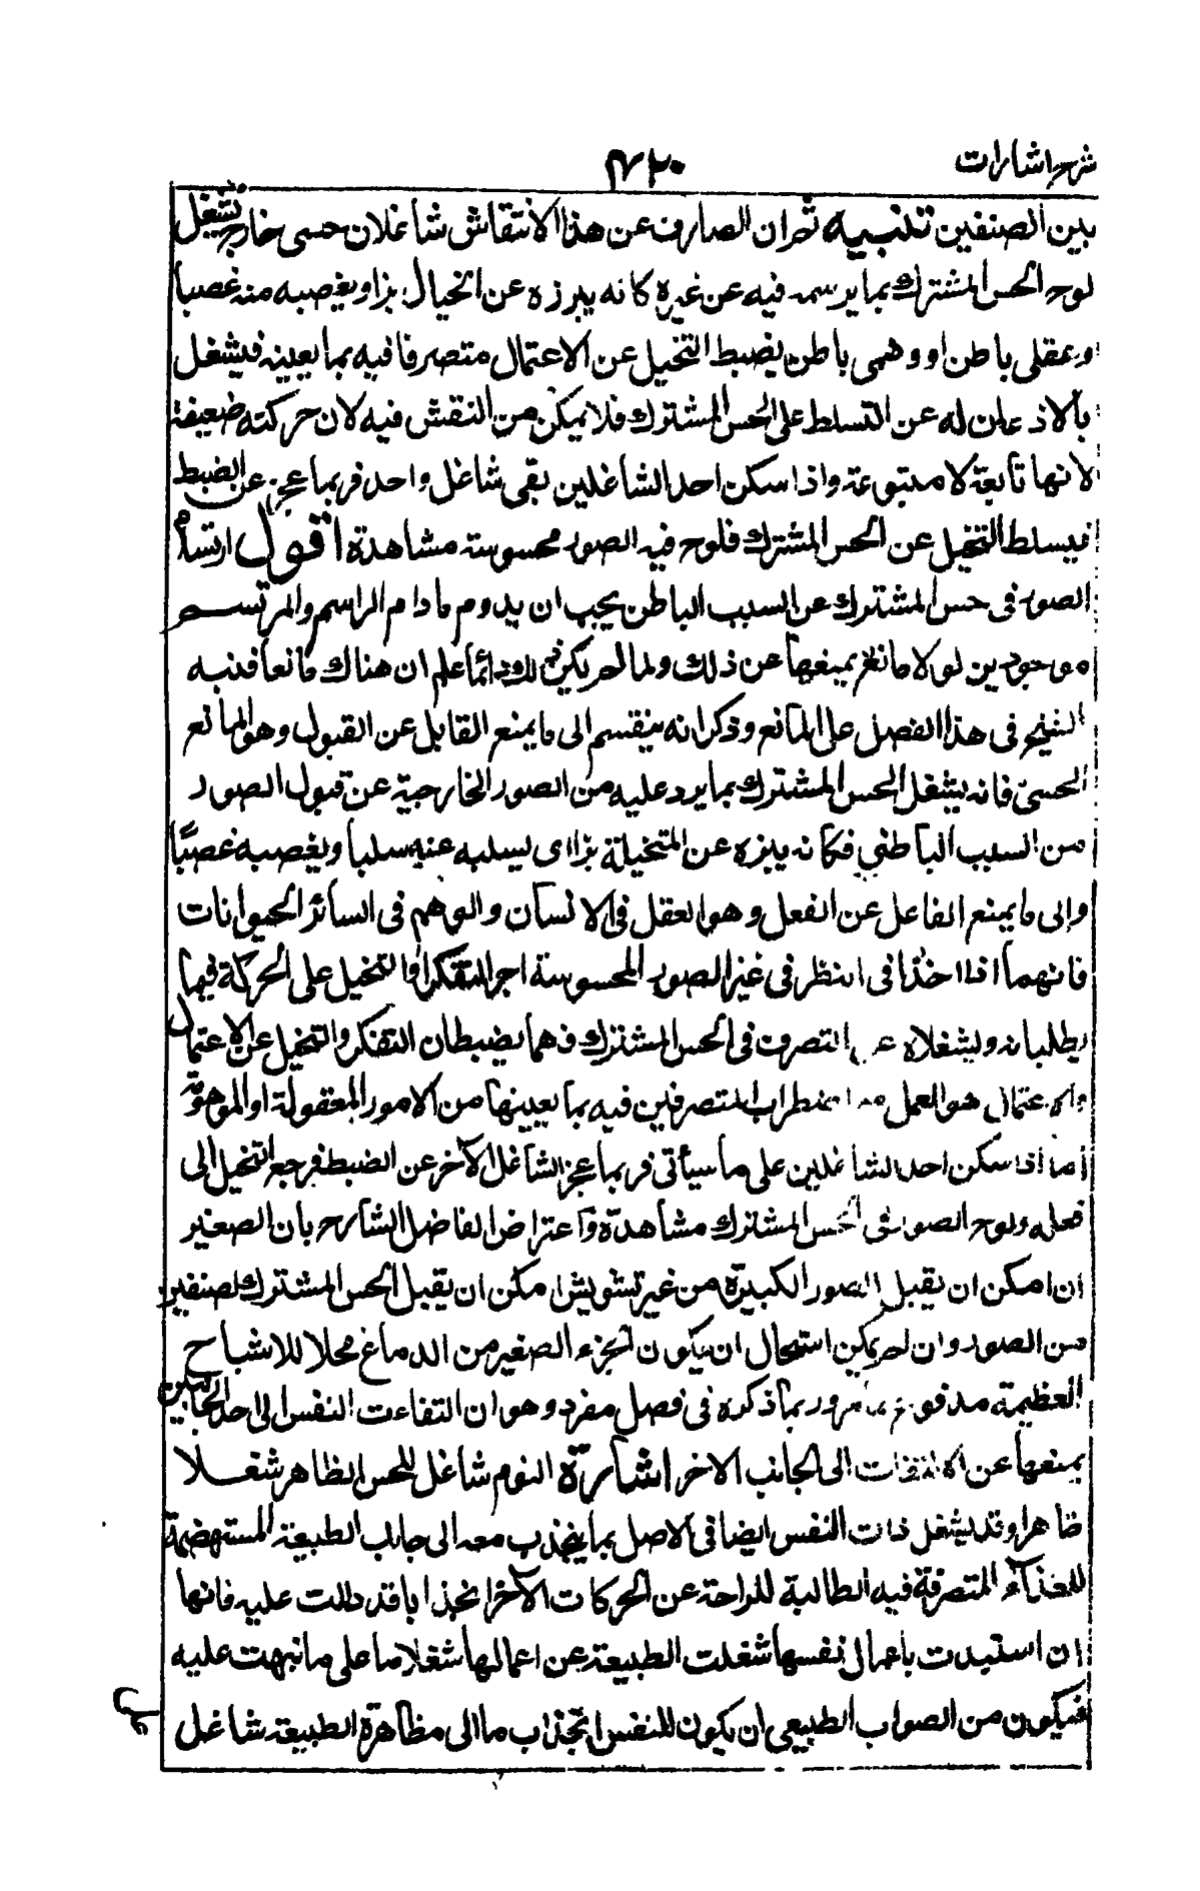 شرح اشارات
بين الصنفين تنبيه ثم ان الصارف عن هذا الانتقاش شاغلان حسى خارج يشغل
لوح الحس المشترك بما يرسمه فيه عن غيره كانه يبزه عن الخيال بزا ويغصبه منه غصبا
وعقلى باطن او وهمى باطن يضبط التخيل عن الاعتمال متصرفا فيه بما يعينه فيشغل
بالاذعان له عن التسلط على الحس المشترك فلا يمكن من النقش فيه لان حركته ضعيفة
لانها تابعة لا متبوعة واذا سكن احد الشاغلين بقى شاغل واحد فربما عجز عن الضبط
فيسلط التخيل عن الحس المشترك فلوح فيه الصور محسوسة مشاهدة اقول ارتسام
الصور فى حس المشترك عن السبب الباطن يجب ان يدوم ما دام الراسم والمرتسم
موجودين لولا مانع يمنعها عن ذلك ولما لم يكن ذلك دائما علم ان هناك مانعا فنبه
الشيخ فى هذا الفصل على المانع وذكر انه ينقسم الى ما يمنع القابل عن القبول وهو المانع
الحسى فانه يشغل الحس المشترك بما يرد عليه من الصور الخارجية عن قبول الصور
من السبب الباطني فكانه يبزه عن المتخيلة بزا اى يسلبه عنه سلبا ويغصبه غصبًا
وإلى ما يمنع الفاعل عن الفعل وهو العقل فى الانسان والوهم فى السائر الحيوانات
فانهما اذا اخذا فى النظر فى غير الصور المحسوسة اجبرا التفكر او التخيل على الحركة فيما
يطلبانه ويشغلاه عن التصرف فى الحس المشترك فهما يضبطان التفكر والتخيل عن الاعتمال
والاعتمال هو العمل مع اضطراب المتصرفين فيه بما يعينها من الامور المعقولة او الموهومة
أما اذا سكن احد الشاغلين على ما سيأتى فربما عجز الشاغل الآخر عن الضبط فرجع التخيل الى
فعله ولوح الصور فى الحس المشترك مشاهدة واعتراض الفاضل الشارح بان الصغير
ان امكن ان يقبل الصور الكبيرة من غير تشويش امكن ان يقبل الحس المشترك الصنفين
من الصور وان لم يمكن استحال ان يكون الجزء الصغير من الدماغ محلا للاشباح
العظيمة مدفوع بما مرور بما ذكره فى فصل مفرد وهو ان التفاءت النفس الى احد الجانبين
يمنعها عن الالتفات الى الجانب الاخر اشارة النوم شاغل للحس الظاهر شغلا
ظاهرا وقد يشغل ذات النفس ايضا فى الاصل بما ينجذب معه الى جانب الطبيعة المستهضمة
للغذاء المتصرفة فيه الطالبة للراحة عن الحركات الآخر انجذابا قد دللت عليه فانها
ان استبدت باعمال نفسها شغلت الطبيعة عن اعمالها شغلا ما على ما نبهت عليه
فيكون من الصواب الطبيعى ان يكون للنفس انجذاب ما الى مظاهرة الطبيعة شاغل